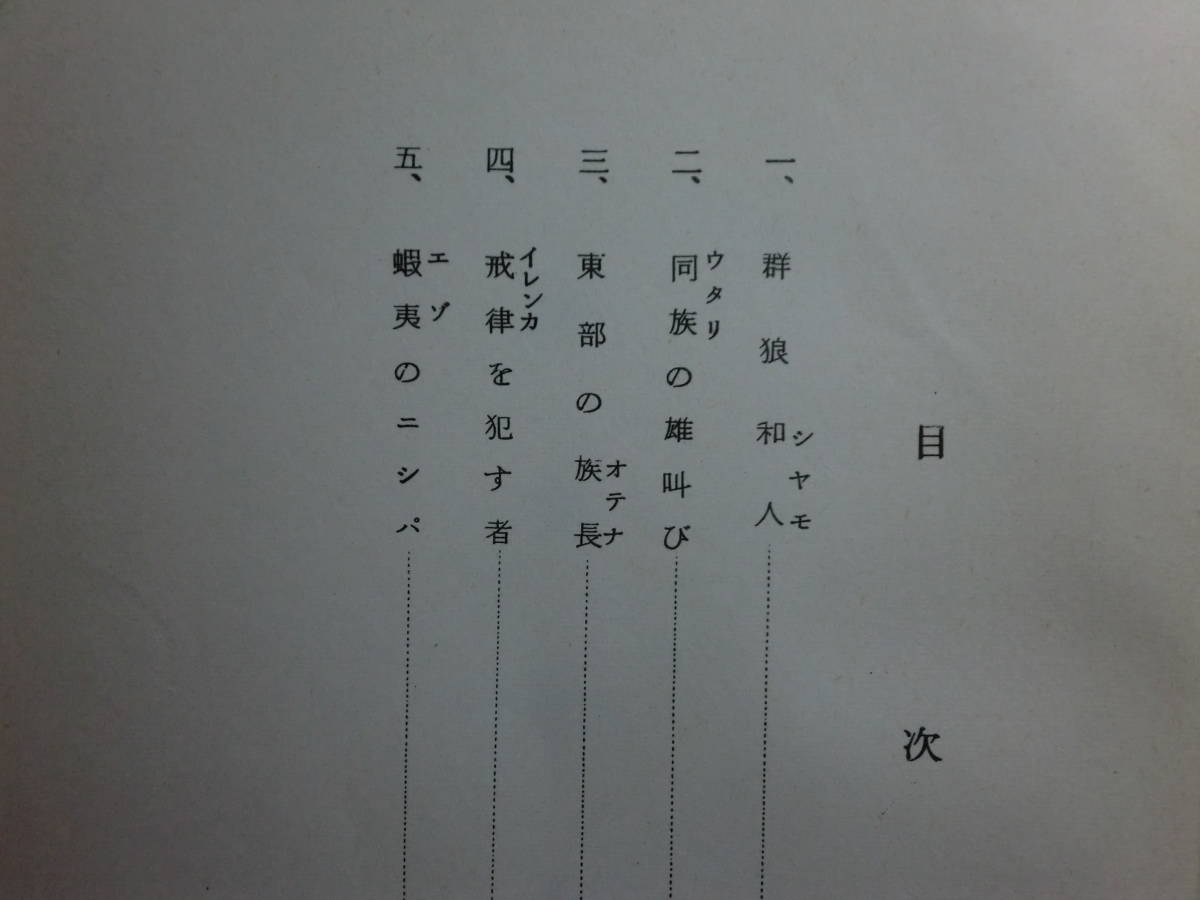 目次
一、群狼和人シヤモ
二、同族ウタリの雄叫び
三、東部の族長オテナ
四、戒律イレンカを犯す者
五、蝦夷エゾのニシパ